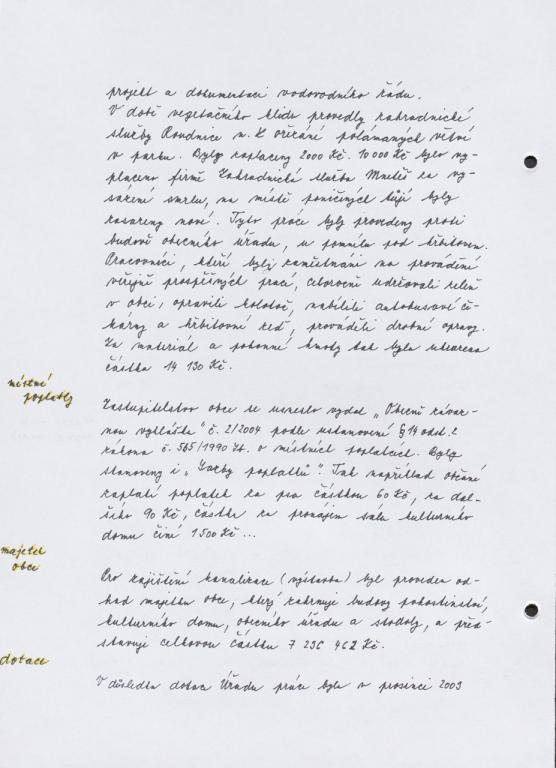 projekt a dokumentaci vodovodního řádu.
V době vegetačního klidu provedly zahradnické
služby Roudnice n. L ořezání polámaných větví
v parku. Bylo zaplaceno 2000 Kč. 10 000 Kč bylo vy-
placeno firmě Zahradnická služba za vy-
sázení smrku, na místě poničených tújí byly
zasazeny nové. Tyto práce byly provedeny proti
budově obecního úřadu, u pomníku pod hřbitovem.
Pracovníci, kteří byli zaměstnáni na provádění
veřejně prospěšných prací, celoročně udržovali zeleň
v obci, opravili kolotoč, nabílili autobusové če-
kárny a hřbitovní zeď, prováděli drobné opravy.
Za materiál a pohonné hmoty tak byla uhrazena
částka 14 130 Kč.
místní
poplatky
Zastupitelstvo obce se usneslo vydat „Obecně závaz-
nou vyhlášku" č. 2/2004 podle ustanovení § 14 odst. 2
zákona č. 565/1990 Sb. o místních poplatcích. Byly
stanoveny i „Sazby poplatků". Tak například občané
zaplatí poplatek za psa částkou 60 Kč, za dal-
šího 90 Kč, částka za pronájem sálu kulturního
domu činí 1500 Kč...
majetek
obce
Pro zajištění kanalizace (výstavba) byl proveden od-
had majetku obce, který zahrnuje budovy pohostinství,
kulturního domu, obecního úřadu a stodoly, a před-
stavuje celkovou částku 7 236 462 Kč.
dotace
V důsledku dotace Úřadu práce byla v prosinci 2003